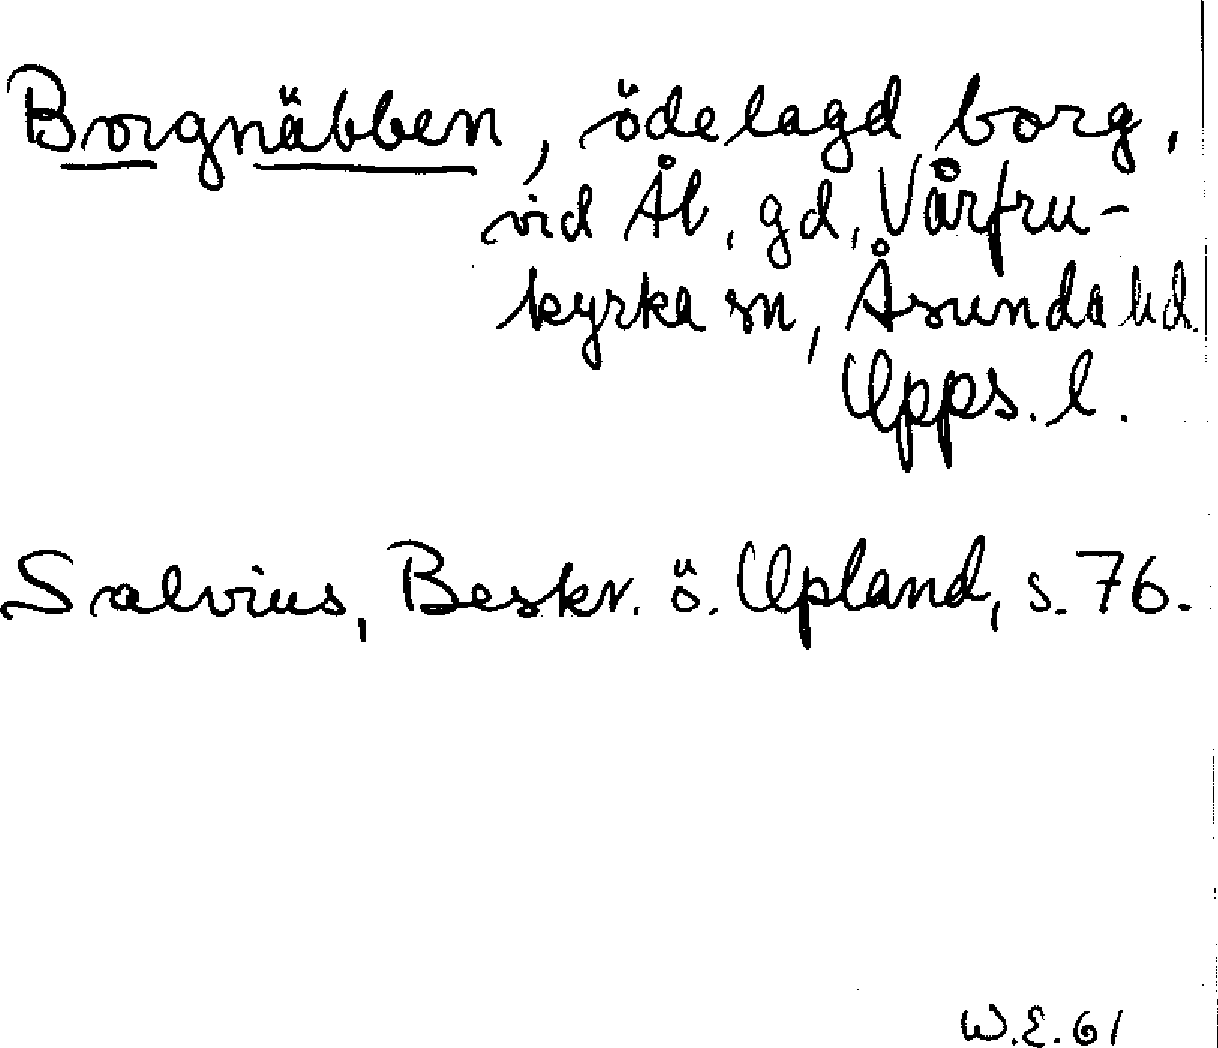 Borgnäbben, ödelagd borg,
vid Ål, gd, Vårfru-
kyrka sn, Åsunda hd.
Upps. l.
Salvius, Beskr. ö. Upland, s. 76.
W.E. 61